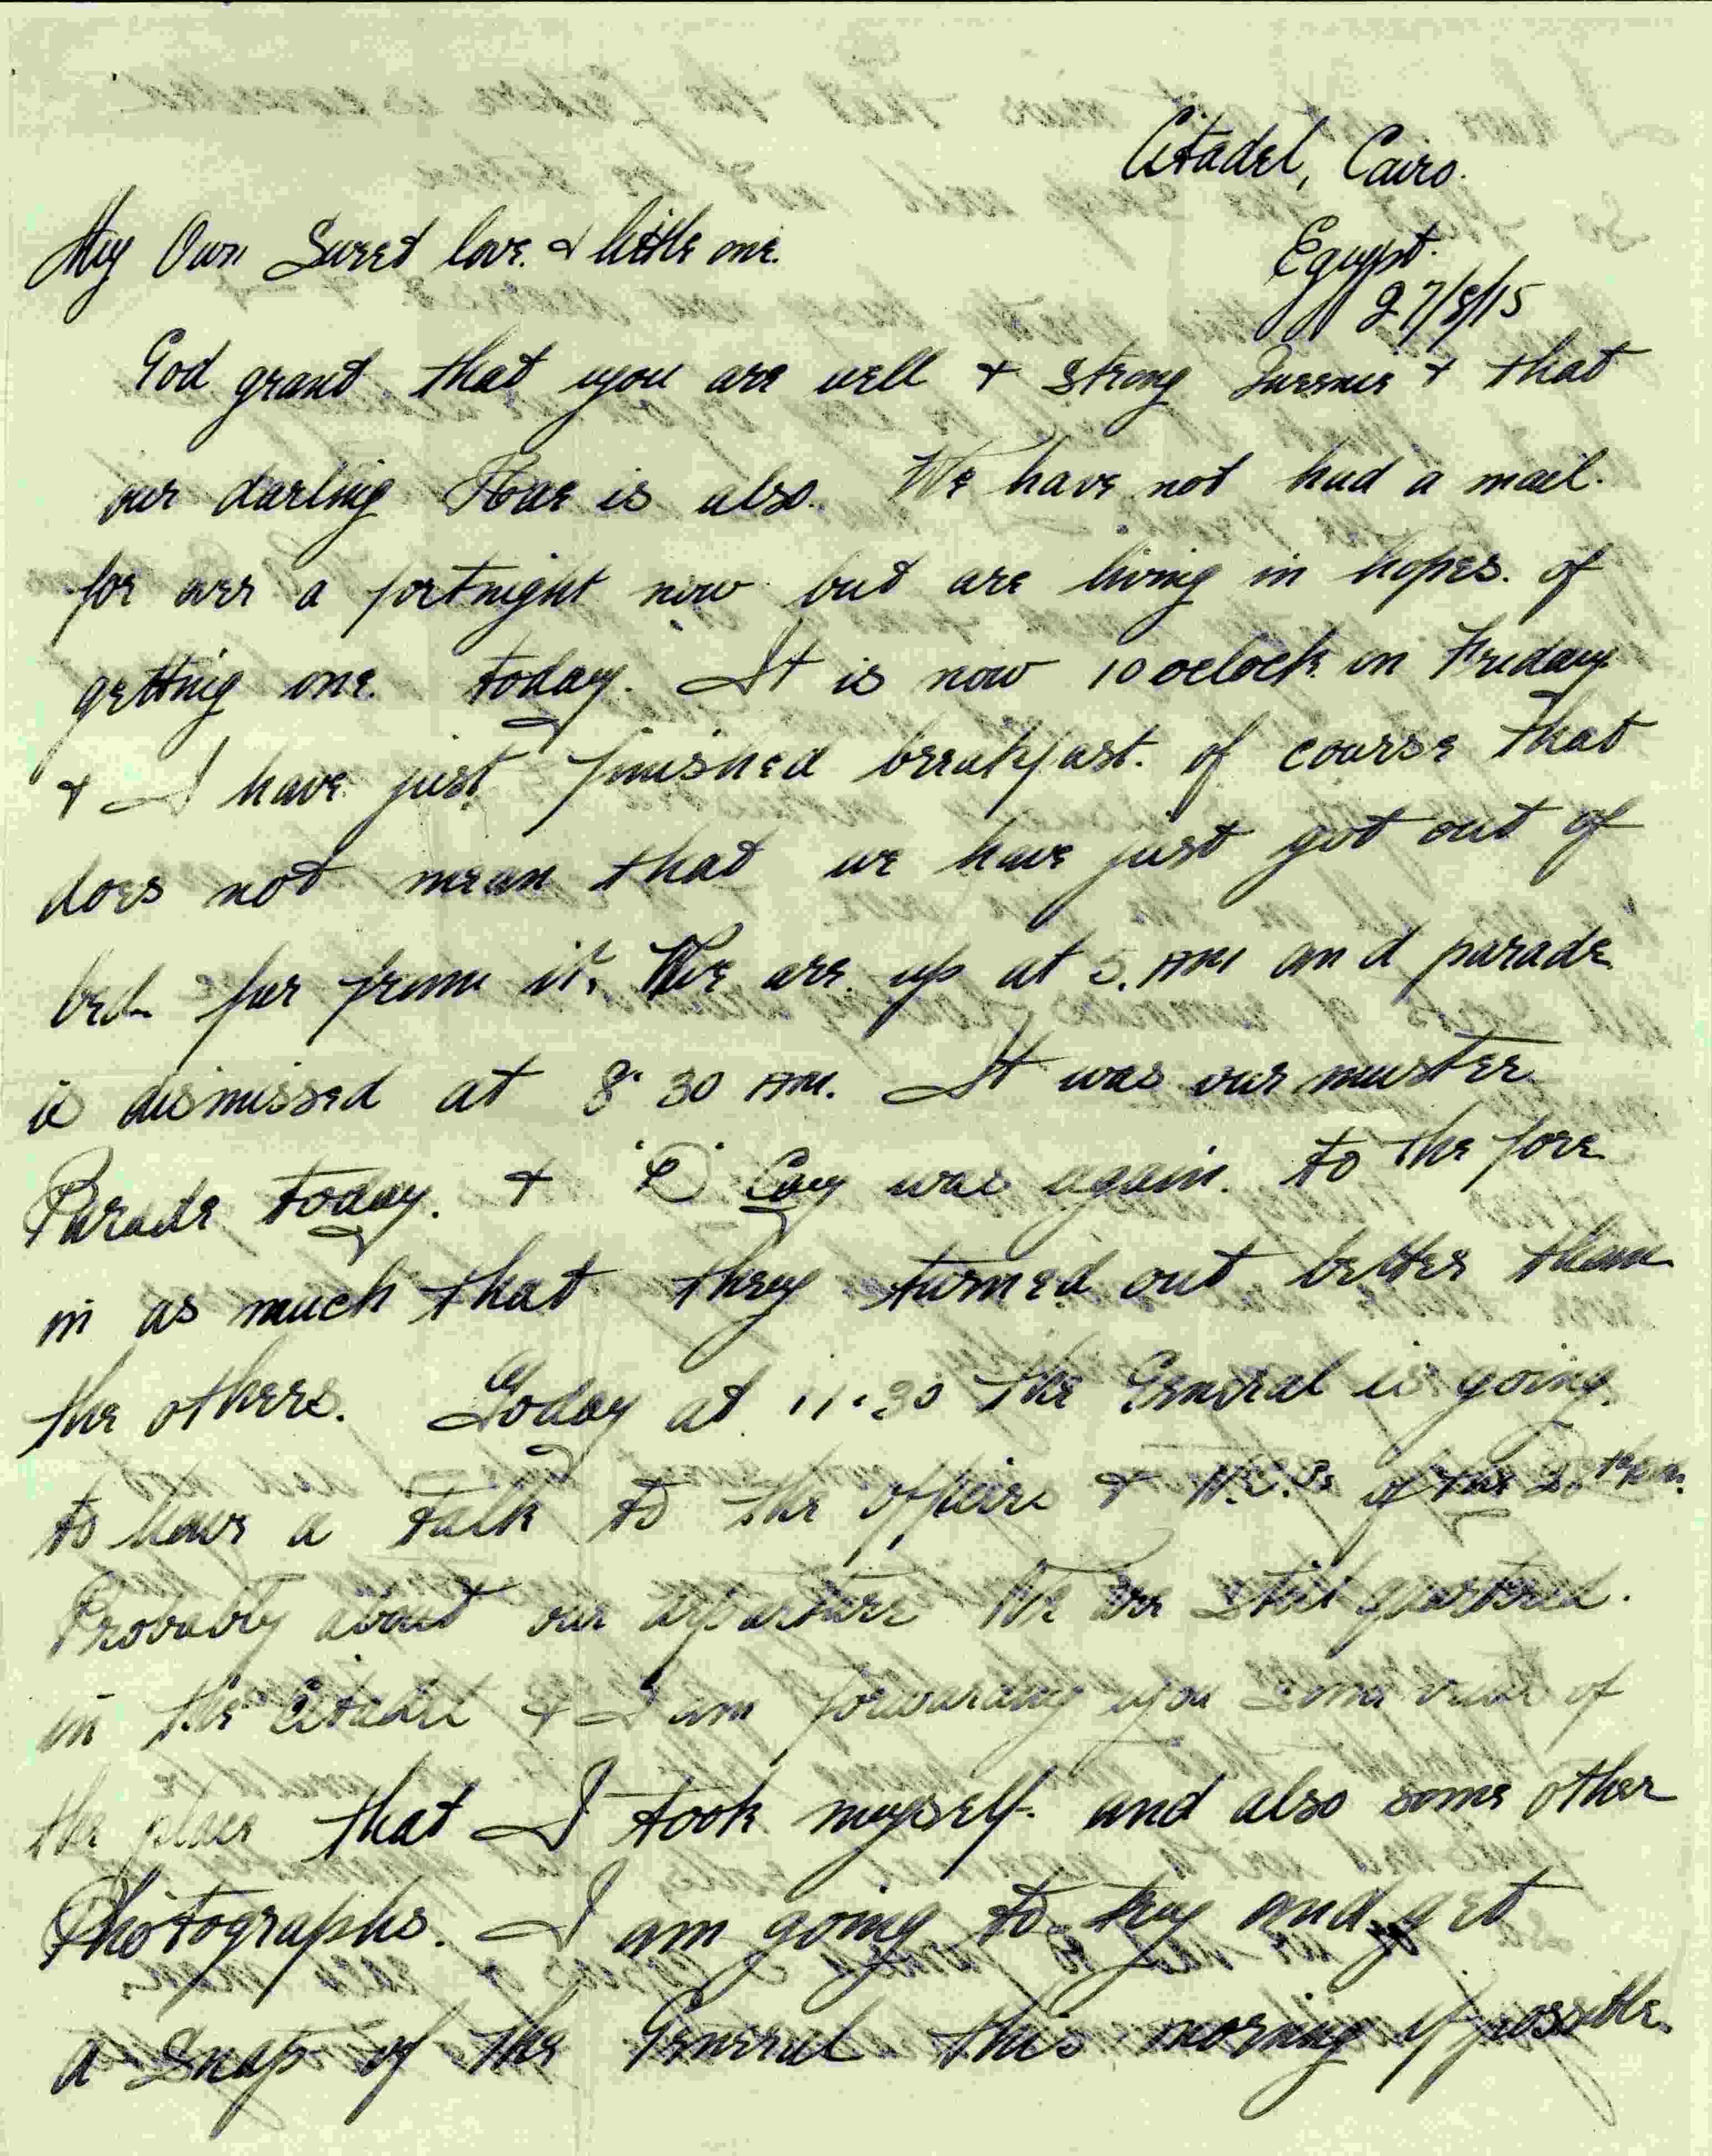 Citadel, Cairo.
Egypt.
27/8/15
My Own Sweet love. & little one.
God grant that you are well & strong Queenie & that
our darling is also. We have not had a mail.
for over a fortnight now but are living in hopes. of
getting one. today. It is now 10 oclock. on Friday
& I have just finished breakfast. of course that
does not mean that we have just got out of
bed far from it. We are up at 5. AM and parade
is dismissed at 8.30 AM. It was our muster
Parade today. & 'D' Coy was again. to the fore
in as much that they turned out better than
the others. Today at 11.30 the General is going.
to have a talk to the officers & N.C.Os of the
Probably about our departure We are still quartered.
in the Citadel & I am forwarding you some views of
the place that I took myself. and also some other
Photographs. I am going to try and get
a Snap of the General this morning if possible.